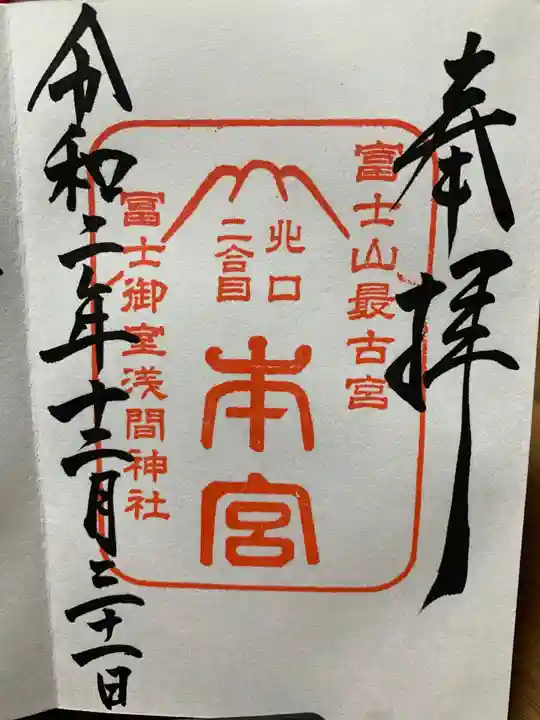 奉拝
富士山最古宮
北口
二合目
本宮
冨士御室浅間神社
令和二年十二月三十一日